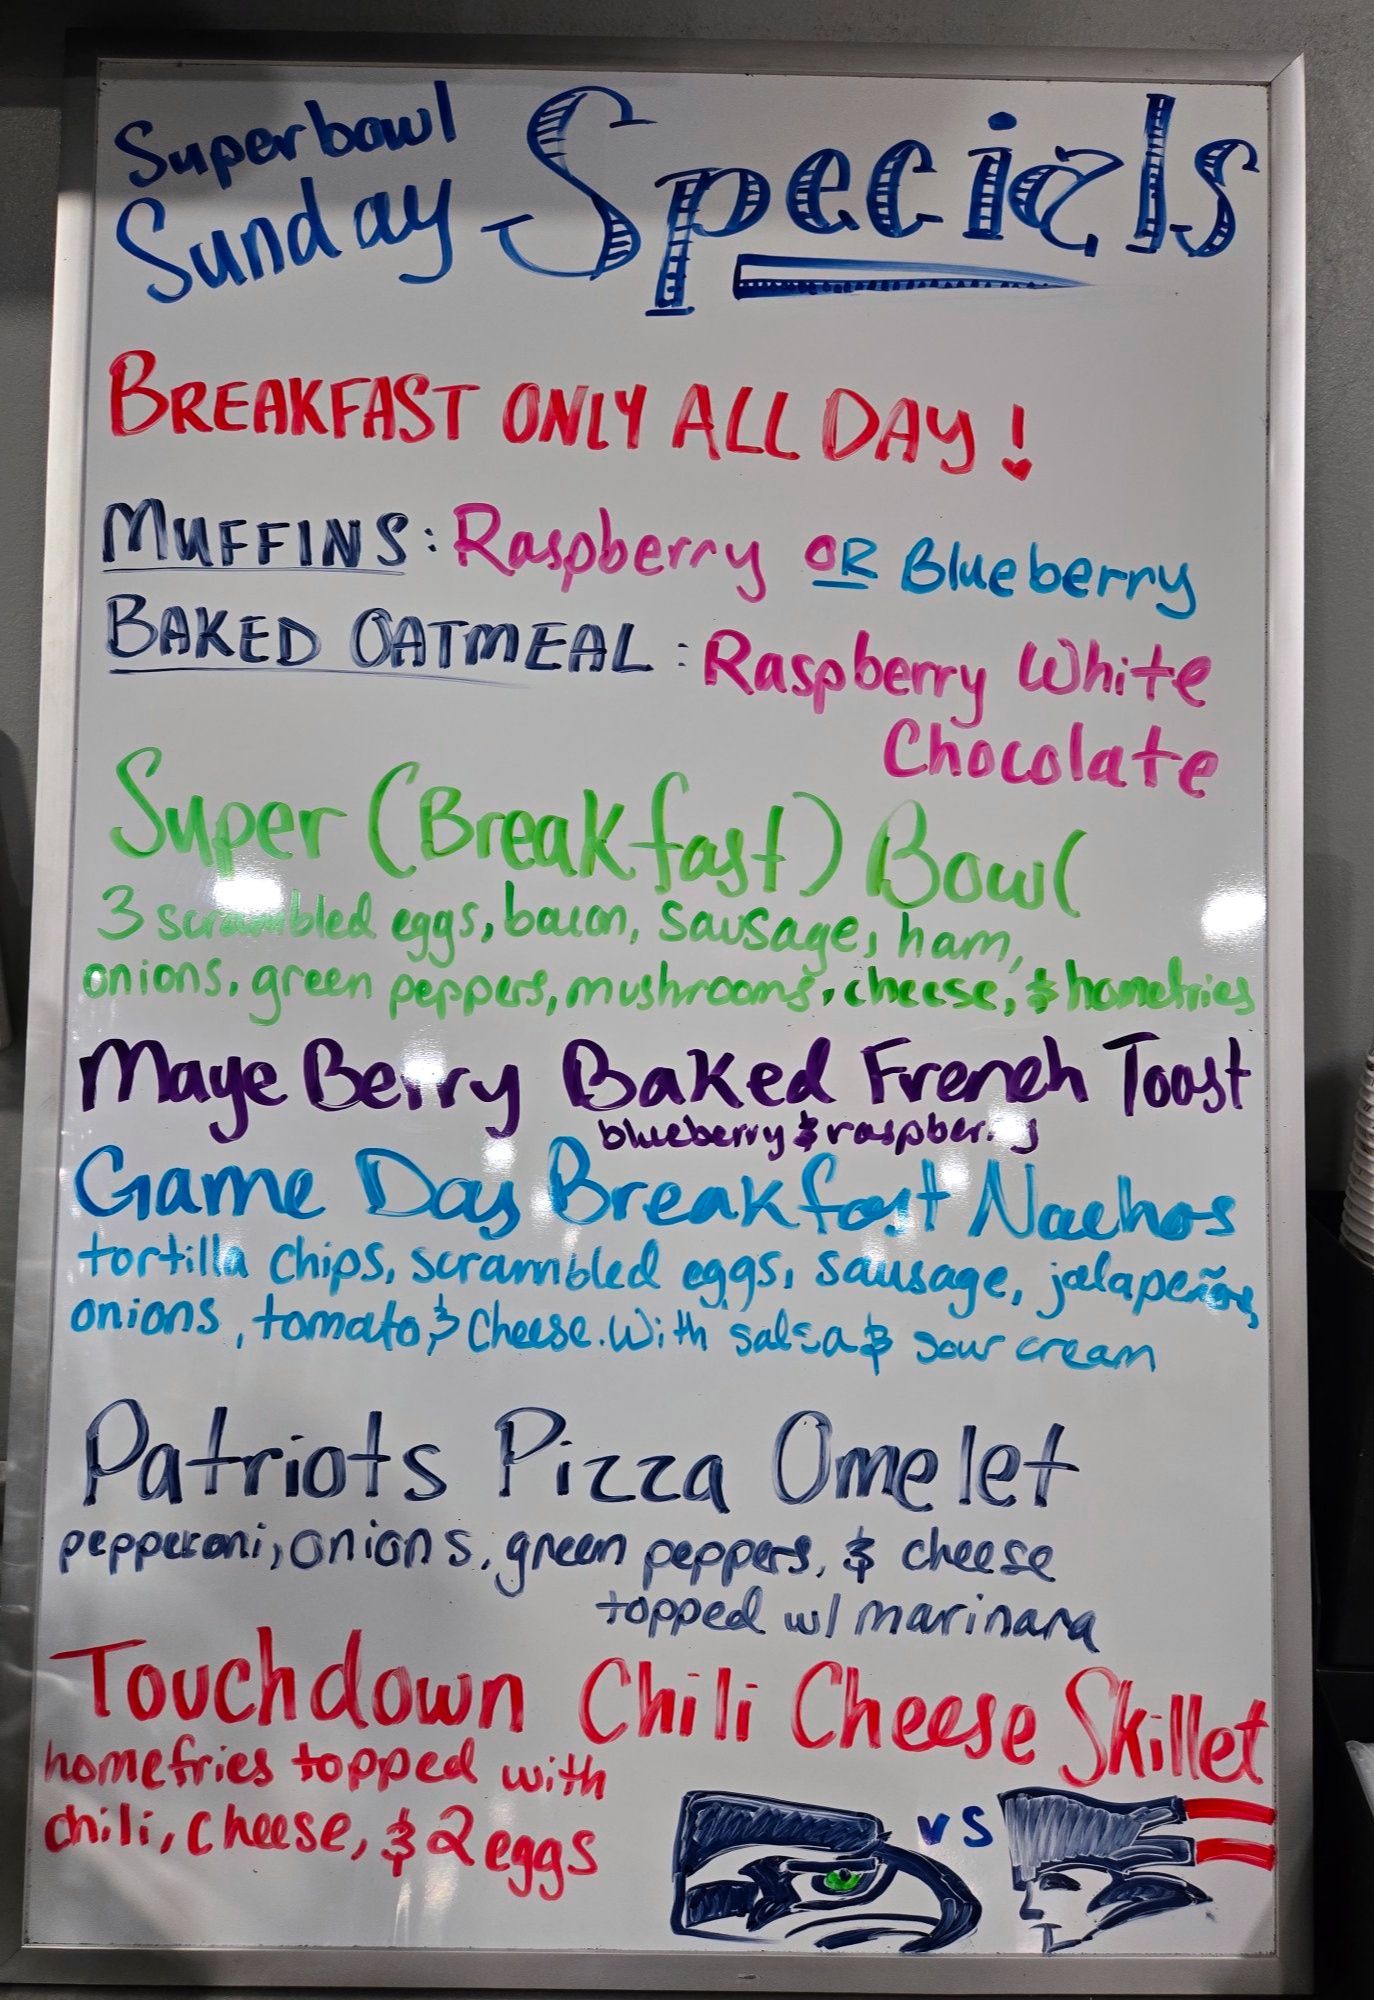 Superbowl
Sunday Specials
BREAKFAST ONLY ALL DAY!
MUFFINS: Raspberry OR Blueberry
BAKED OATMEAL: Raspberry White
Chocolate
Super (Breakfast) Bowl
3 scrambled eggs, bacon, sausage, ham,
onions, green peppers, mushrooms, cheese, & homefries
Maye Berry Baked French Toast
blueberry & raspberry
Game Day Breakfast Nachos
tortilla chips, scrambled eggs, sausage, jalapeños,
onions, tomato, & cheese. With salsa & sour cream
Patriots Pizza Omelet
pepperoni, onions, green peppers, & cheese
topped w/ marinara
Touchdown Chili Cheese Skillet
homefries topped with
chili, cheese, & 2 eggs
vs